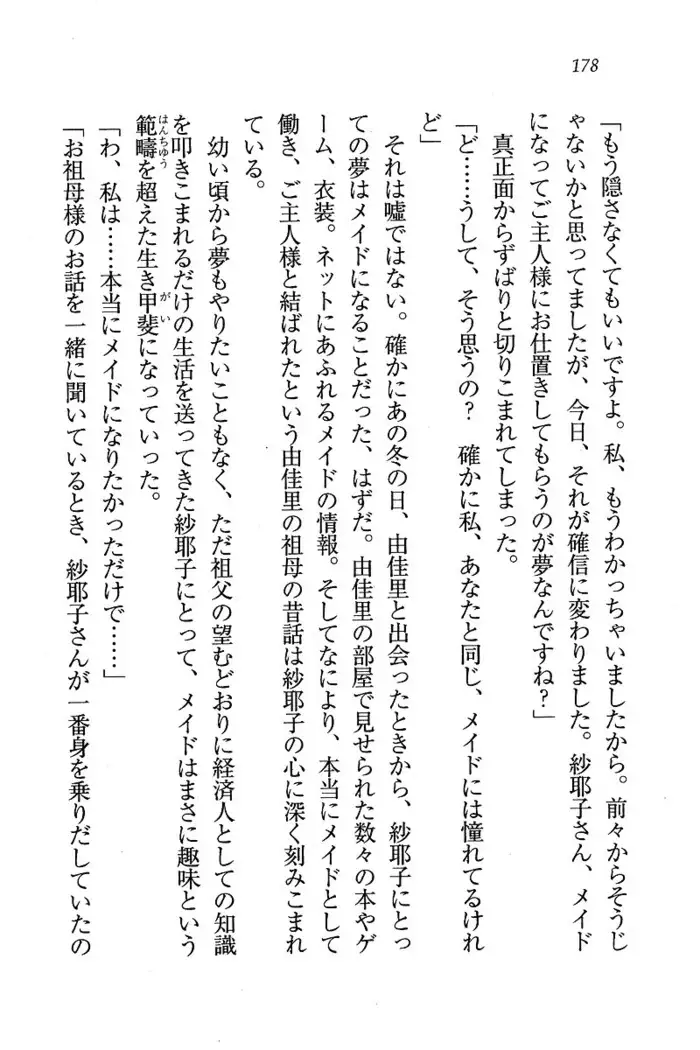 178
「もう隠さなくてもいいですよ。私、もうわかっちゃいましたから。前々からそうじ
ゃないかと思ってましたが、今日、それが確信に変わりました。紗耶子さん、メイド
になってご主人様にお仕置きしてもらうのが夢なんですね?」
真正面からずばりと切りこまれてしまった。
「ど……うして、そう思うの? 確かに私、あなたと同じ、メイドには憧れてるけれ
ど」
それは嘘ではない。確かにあの冬の日、由佳里と出会ったときから、紗耶子にとっ
ての夢はメイドになることだった、はずだ。由佳里の部屋で見せられた数々の本やゲ
ーム、衣装。ネットにあふれるメイドの情報。そしてなにより、本当にメイドとして
働き、ご主人様と結ばれたという由佳里の祖母の昔話は紗耶子の心に深く刻みこまれ
ている。
幼い頃から夢もやりたいこともなく、ただ祖父の望むどおりに経済人としての知識
を叩きこまれるだけの生活を送ってきた紗耶子にとって、メイドはまさに趣味という
範疇を超えた生き甲斐になっていった。
「わ、私は……本当にメイドになりたかっただけで……」
「お祖母様のお話を一緒に聞いているとき、紗耶子さんが一番身を乗りだしていたの